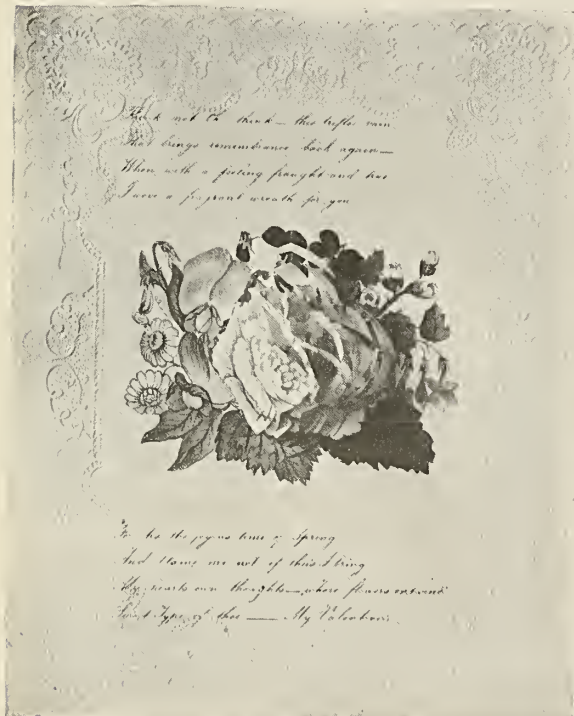 not Oh think — this trifle vain
That brings remembrance back again —
When with a feeling fraught and true
I wove a fragrant wreath for you
tis the joyous time of Spring
And blame me not if thus I bring
My hearts own thoughts — where flowers entwine
Type of thee — My Valentine.